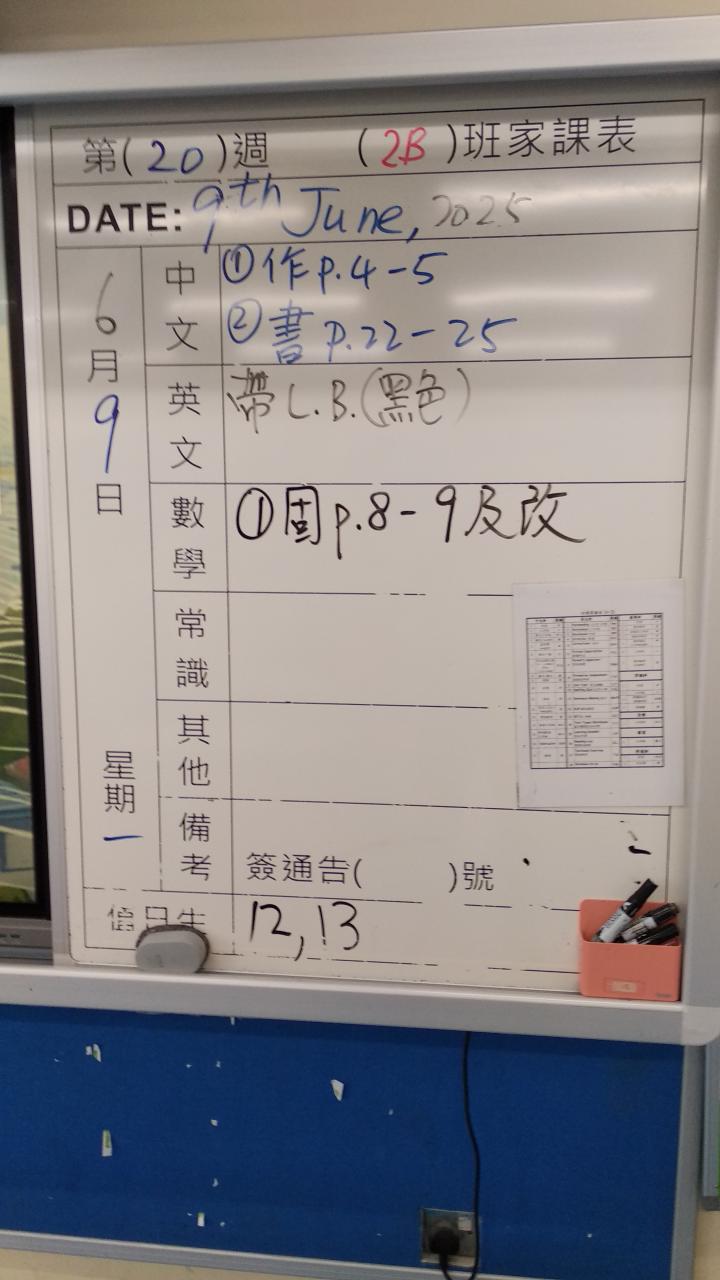 第(20)週 (2B)班家課表
DATE: 9th June, 2025
6月9日 星期一
中文
①作p.4-5
②書p.22-25
英文
帶L.B.(黑色)
數學
①固p.8-9及改
常識
其他
備考
簽通告( )號
值日生
12,13